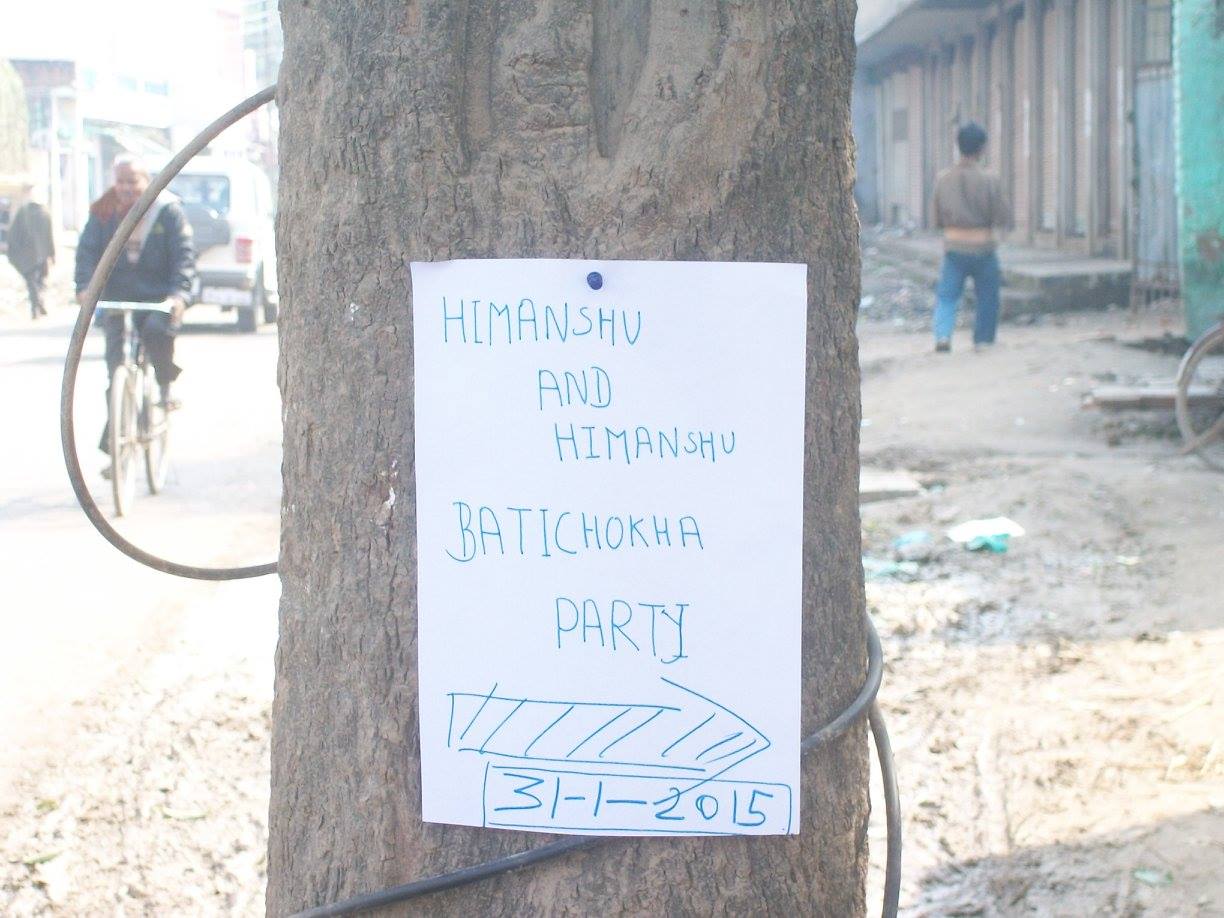 HIMANSHU
AND
HIMANSHU
BATICHOKHA
PARTY
31-1-2015